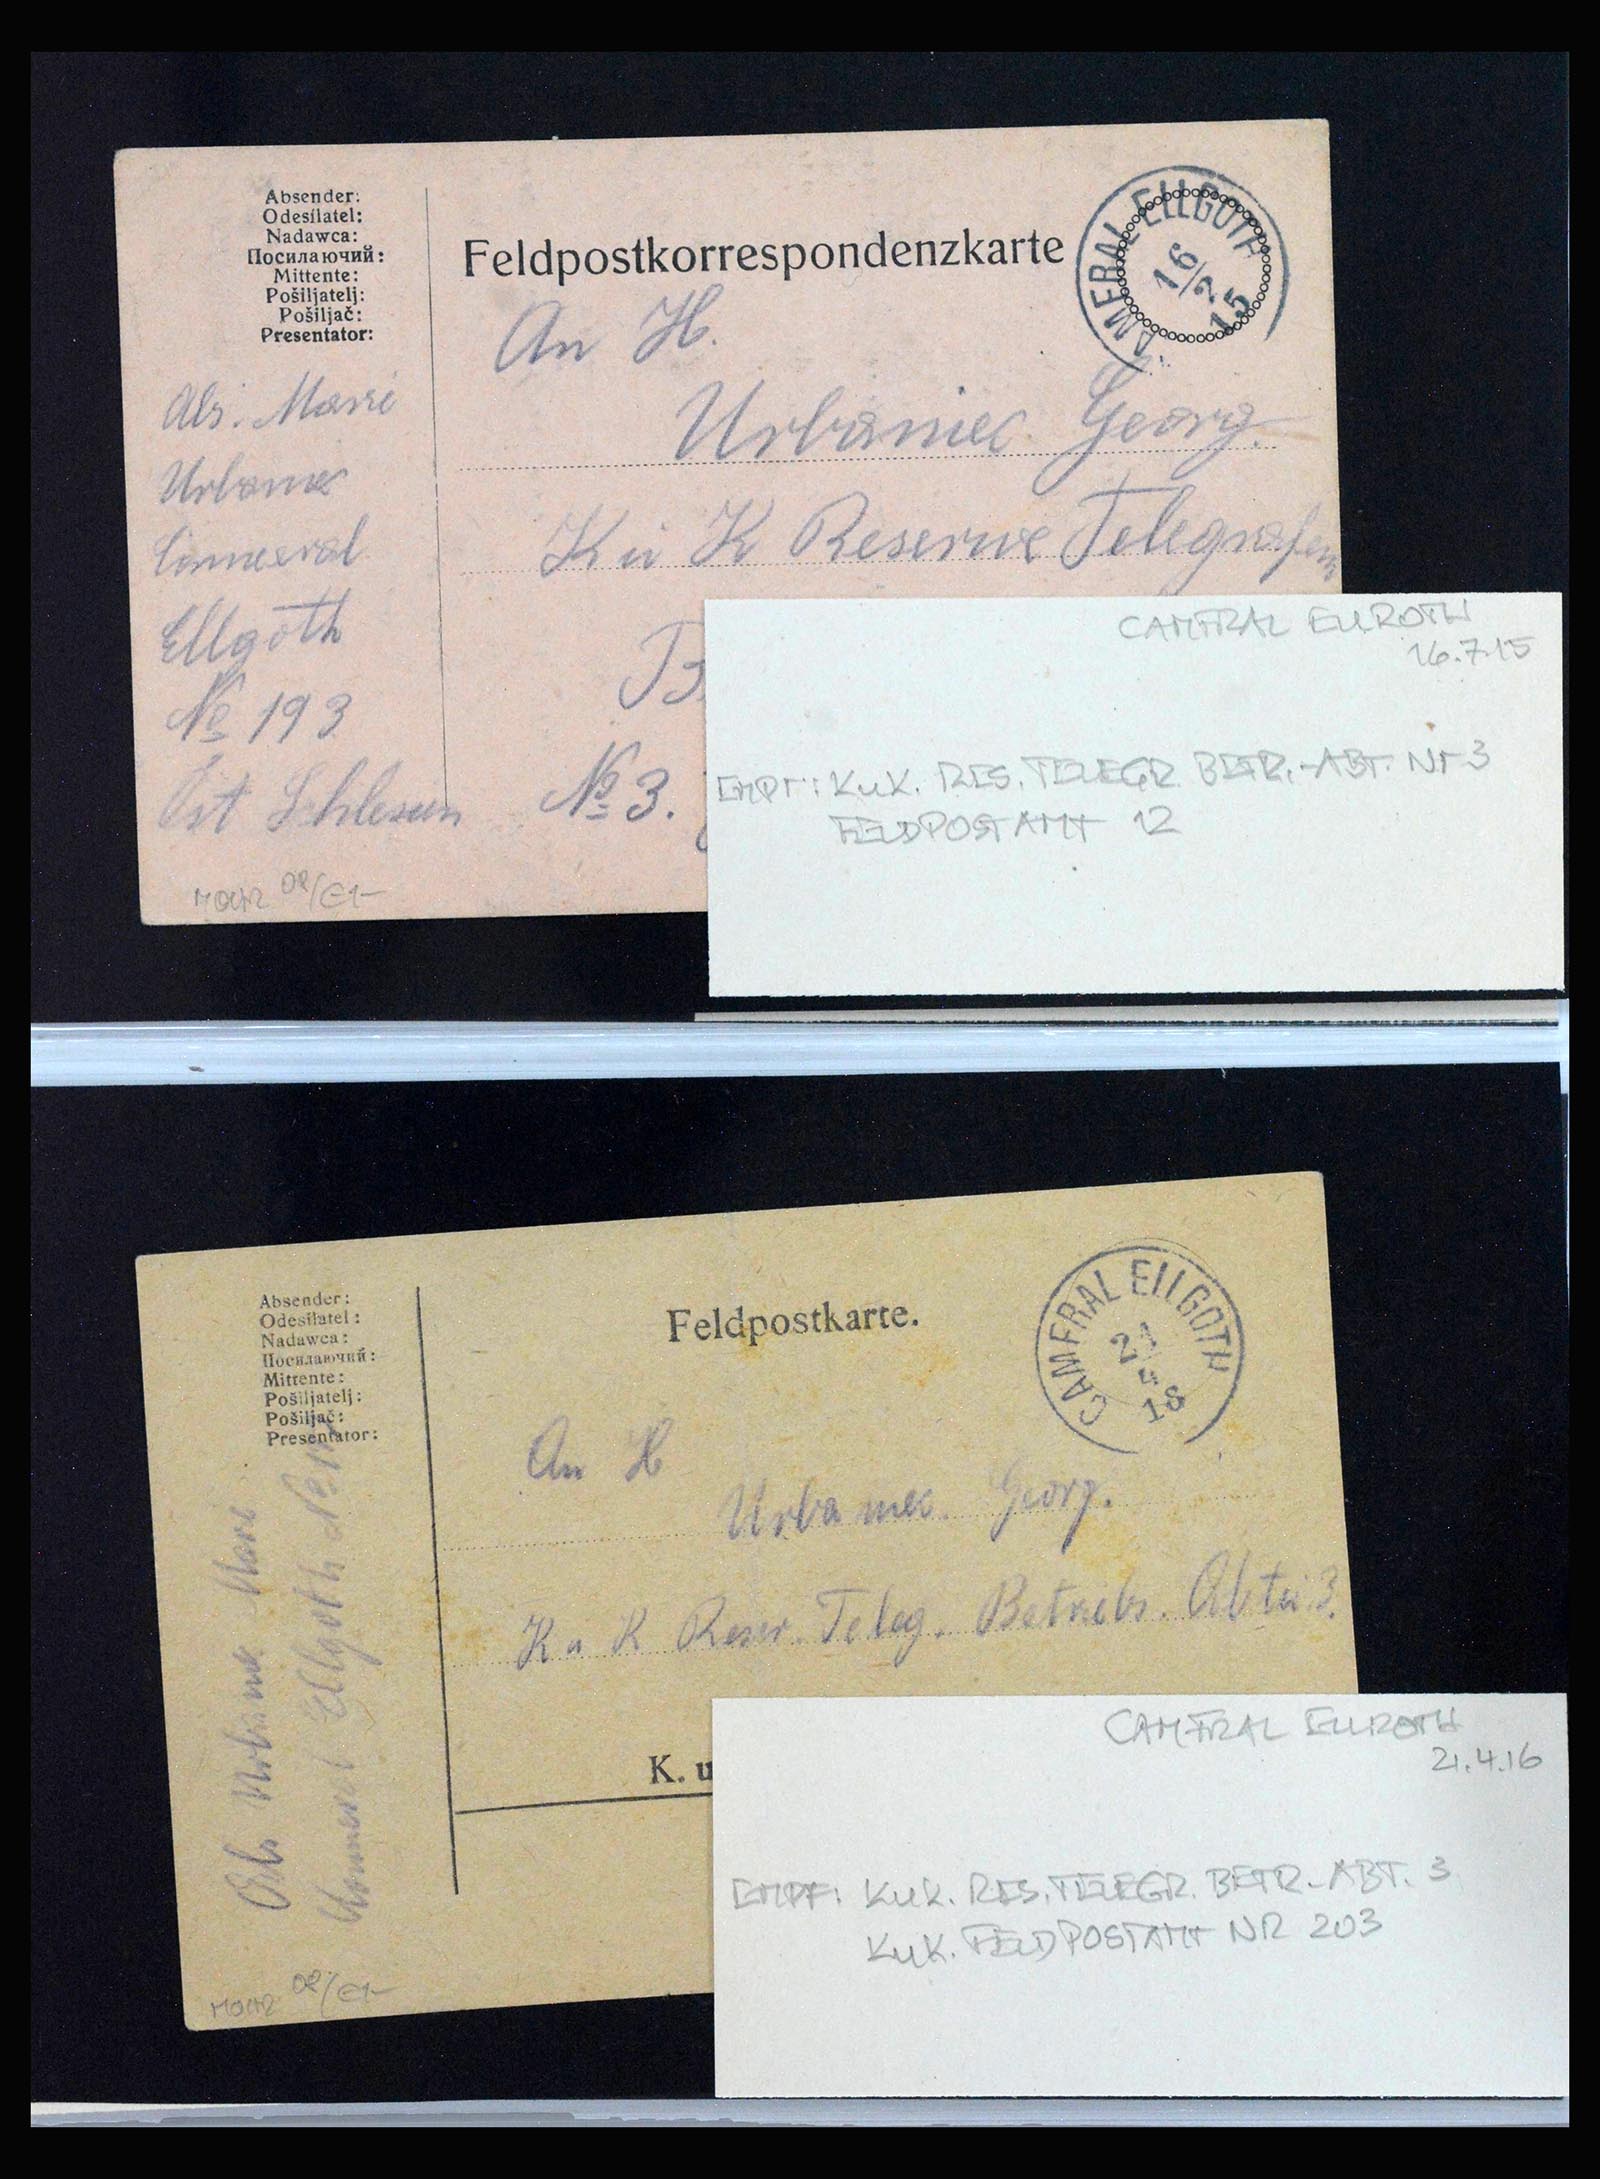 Absender:
Odesílatel:
Nadawca:
Посилаючий:
Mittente:
Pošiljatelj:
Pošiljač:
Presentator:
Feldpostkorrespondenzkarte
CAMERAL ELLGOTH
16/7 15
An H.
Urbaniec Georg.
K u K Reserve Telegrafen
B
№ 3.
Abs. Marie
Urbaniec
Cameral
Ellgoth
№ 193
Öst Schlesien
08/€1-
CAMERAL ELLROTH
16.7.15
EMPF: KuK. RES. TELEGR. BETR.-ABT. Nr 3
FELDPOSTAMT 12
Absender:
Odesílatel:
Nadawca:
Посилаючий:
Mittente:
Pošiljatelj:
Pošiljač:
Presentator:
Feldpostkarte.
CAMERAL ELLGOTH
21 4 16
An H
Urbaniec. Georg.
K u K Reser. Teleg. Betriebs. Abtei 3.
K. u
Abs Urbaniec Marie
Kammeral Ellgoth №
08/€1-
CAMERAL ELLROTH
21.4.16
EMPF: KuK. RES. TELEGR. BETR.-ABT. 3
KuK. FELDPOSTAMT NR 203